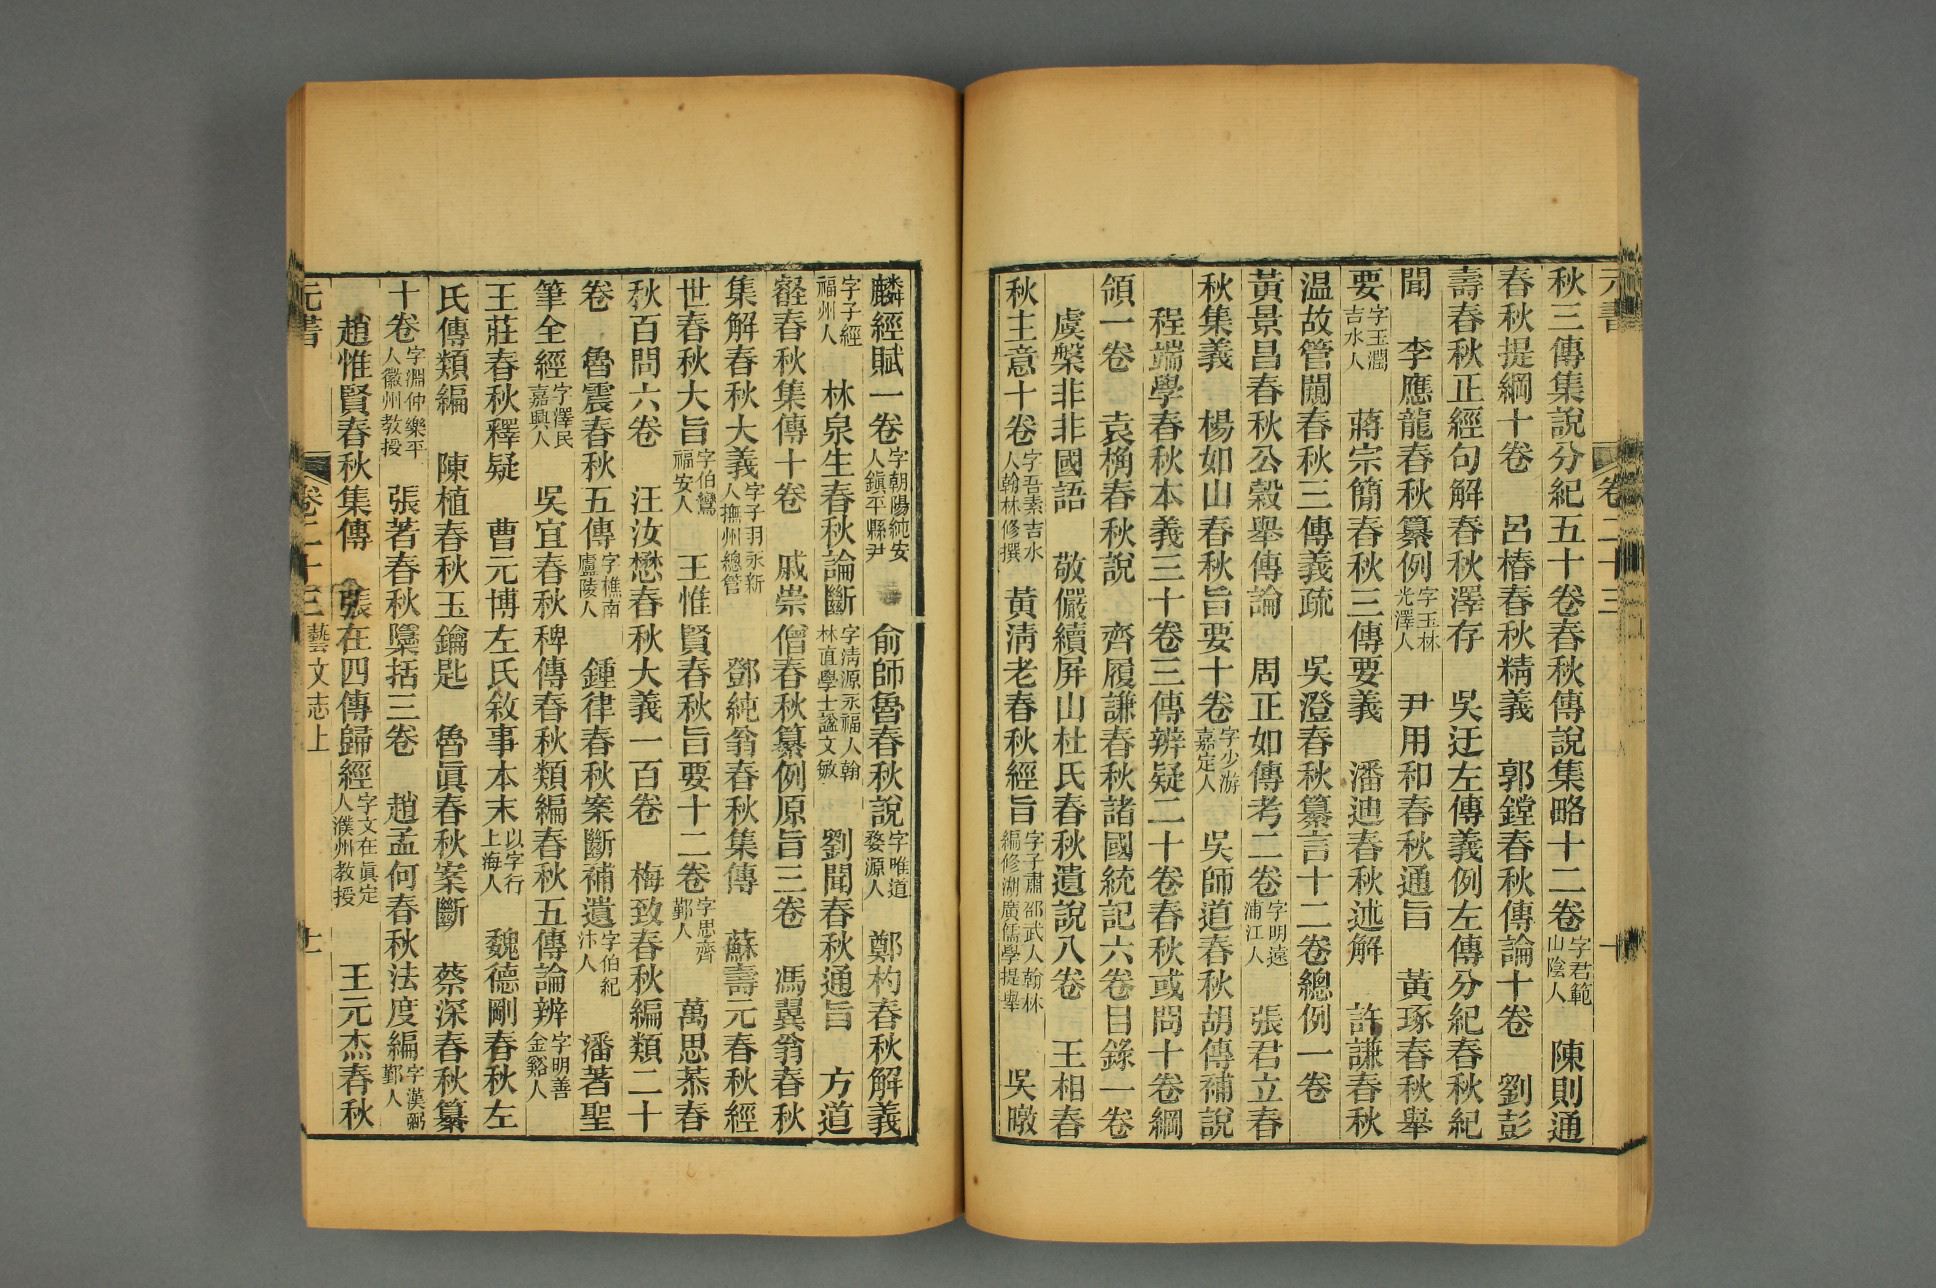 元書 卷二十三 十
秋三傳集說分紀五十卷春秋傳說集略十二卷字君範山陰人 陳則通
春秋提綱十卷 呂椿春秋精義 郭鏜春秋傳論十卷 劉彭
壽春秋正經句解春秋澤存 吳迂左傳義例左傳分紀春秋紀
聞 李應龍春秋纂例字玉林光澤人 尹用和春秋通旨 黃琢春秋舉
要字玉潤吉水人 蔣宗簡春秋三傳要義 潘迪春秋述解 許謙春秋
温故管闚春秋三傳義疏 吳澄春秋纂言十二卷總例一卷
黃景昌春秋公穀舉傳論 周正如傳考二卷字明遠浦江人 張君立春
秋集義 楊如山春秋旨要十卷字少游嘉定人 吳師道春秋胡傳補說
程端學春秋本義三十卷三傳辨疑二十卷春秋或問十卷綱
領一卷 袁桷春秋說 齊履謙春秋諸國統記六卷目錄一卷
虞槃非非國語 敬儼續屏山杜氏春秋遺說八卷 王相春
秋主意十卷字吾素吉水人翰林修撰 黃淸老春秋經旨字子肅邵武人翰林編修湖廣儒學提舉 吳暾
麟經賦一卷字朝陽純安人鎭平縣尹 俞師魯春秋說字唯道婺源人 鄭杓春秋解義
字子經福州人 林泉生春秋論斷字淸源永福人翰林直學士謚文敏 劉聞春秋通旨 方道
壡春秋集傳十卷 戚崇僧春秋纂例原旨三卷 馮翼翁春秋
集解春秋大義字子羽永新人撫州總管 鄧純翁春秋集傳 蘇壽元春秋經
世春秋大旨字伯鸞福安人 王惟賢春秋旨要十二卷字思齊鄞人 萬思恭春
秋百問六卷 汪汝懋春秋大義一百卷 梅致春秋編類二十
卷 魯震春秋五傳字樵南廬陵人 鍾律春秋案斷補遺字伯紀汴人 潘著聖
筆全經字澤民嘉興人 吳宜春秋稗傳春秋類編春秋五傳論辨字明善金谿人
王莊春秋釋疑 曹元博左氏敘事本末以字行上海人 魏德剛春秋左
氏傳類編 陳植春秋玉鑰匙 魯眞春秋案斷 蔡深春秋纂
十卷字淵仲樂平人徽州教授 張著春秋檃括三卷 趙孟何春秋法度編字漢弼鄞人
趙惟賢春秋集傳 張在四傳歸經字文在眞定人濮州教授 王元杰春秋
元書 卷二十三 藝文志上 十一